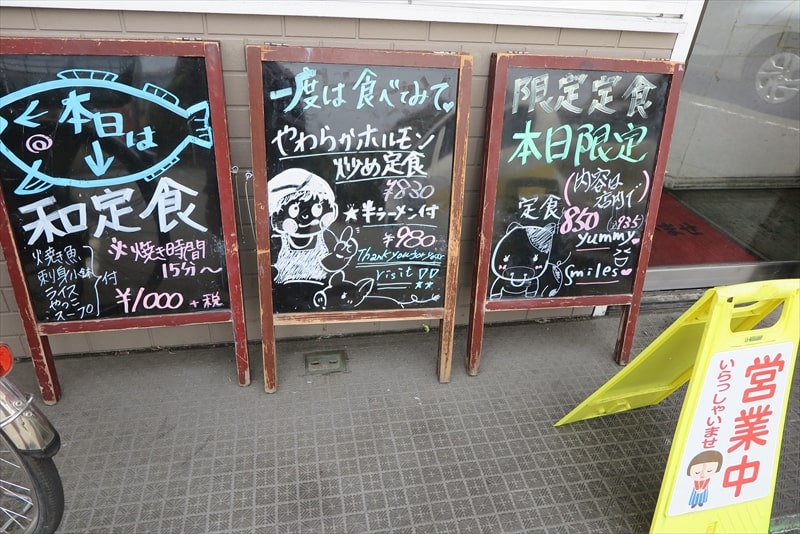 本日は
和定食
焼魚
刺身小鉢
ライス
やっこ
スープ
付
※焼き時間
15分～
¥1000+税
一度は食べてみて
やわらかホルモン
炒め定食
¥830
★半ラーメン付
¥980
Thank you for your
visit
限定定食
本日限定
(内容は
店内で)
定食850
935
yummy
smiles
営業中
いらっしゃいませ